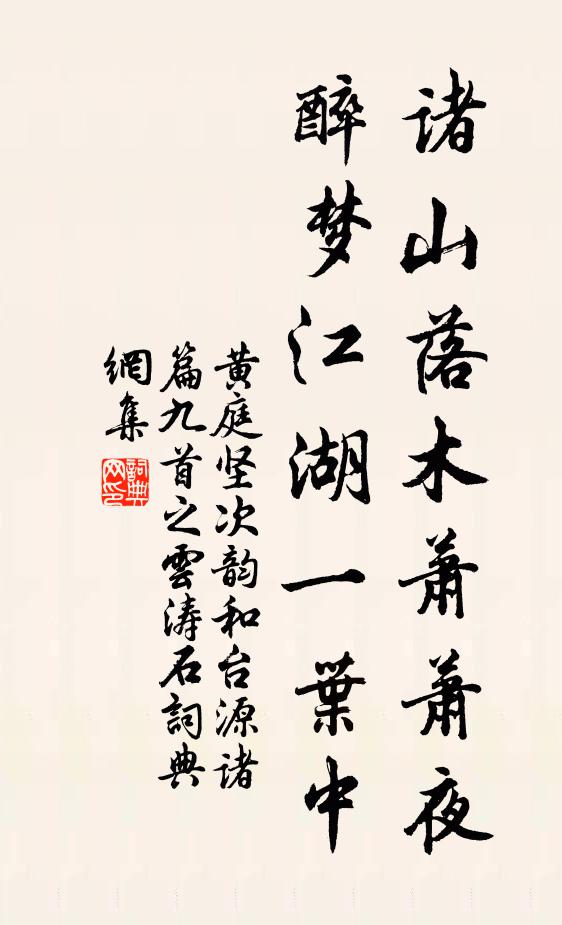 诸山落木萧萧夜
醉梦江湖一葉中
黄庭坚次韵和台源诸
篇九首之雲涛石詞典
網集
詞典网印